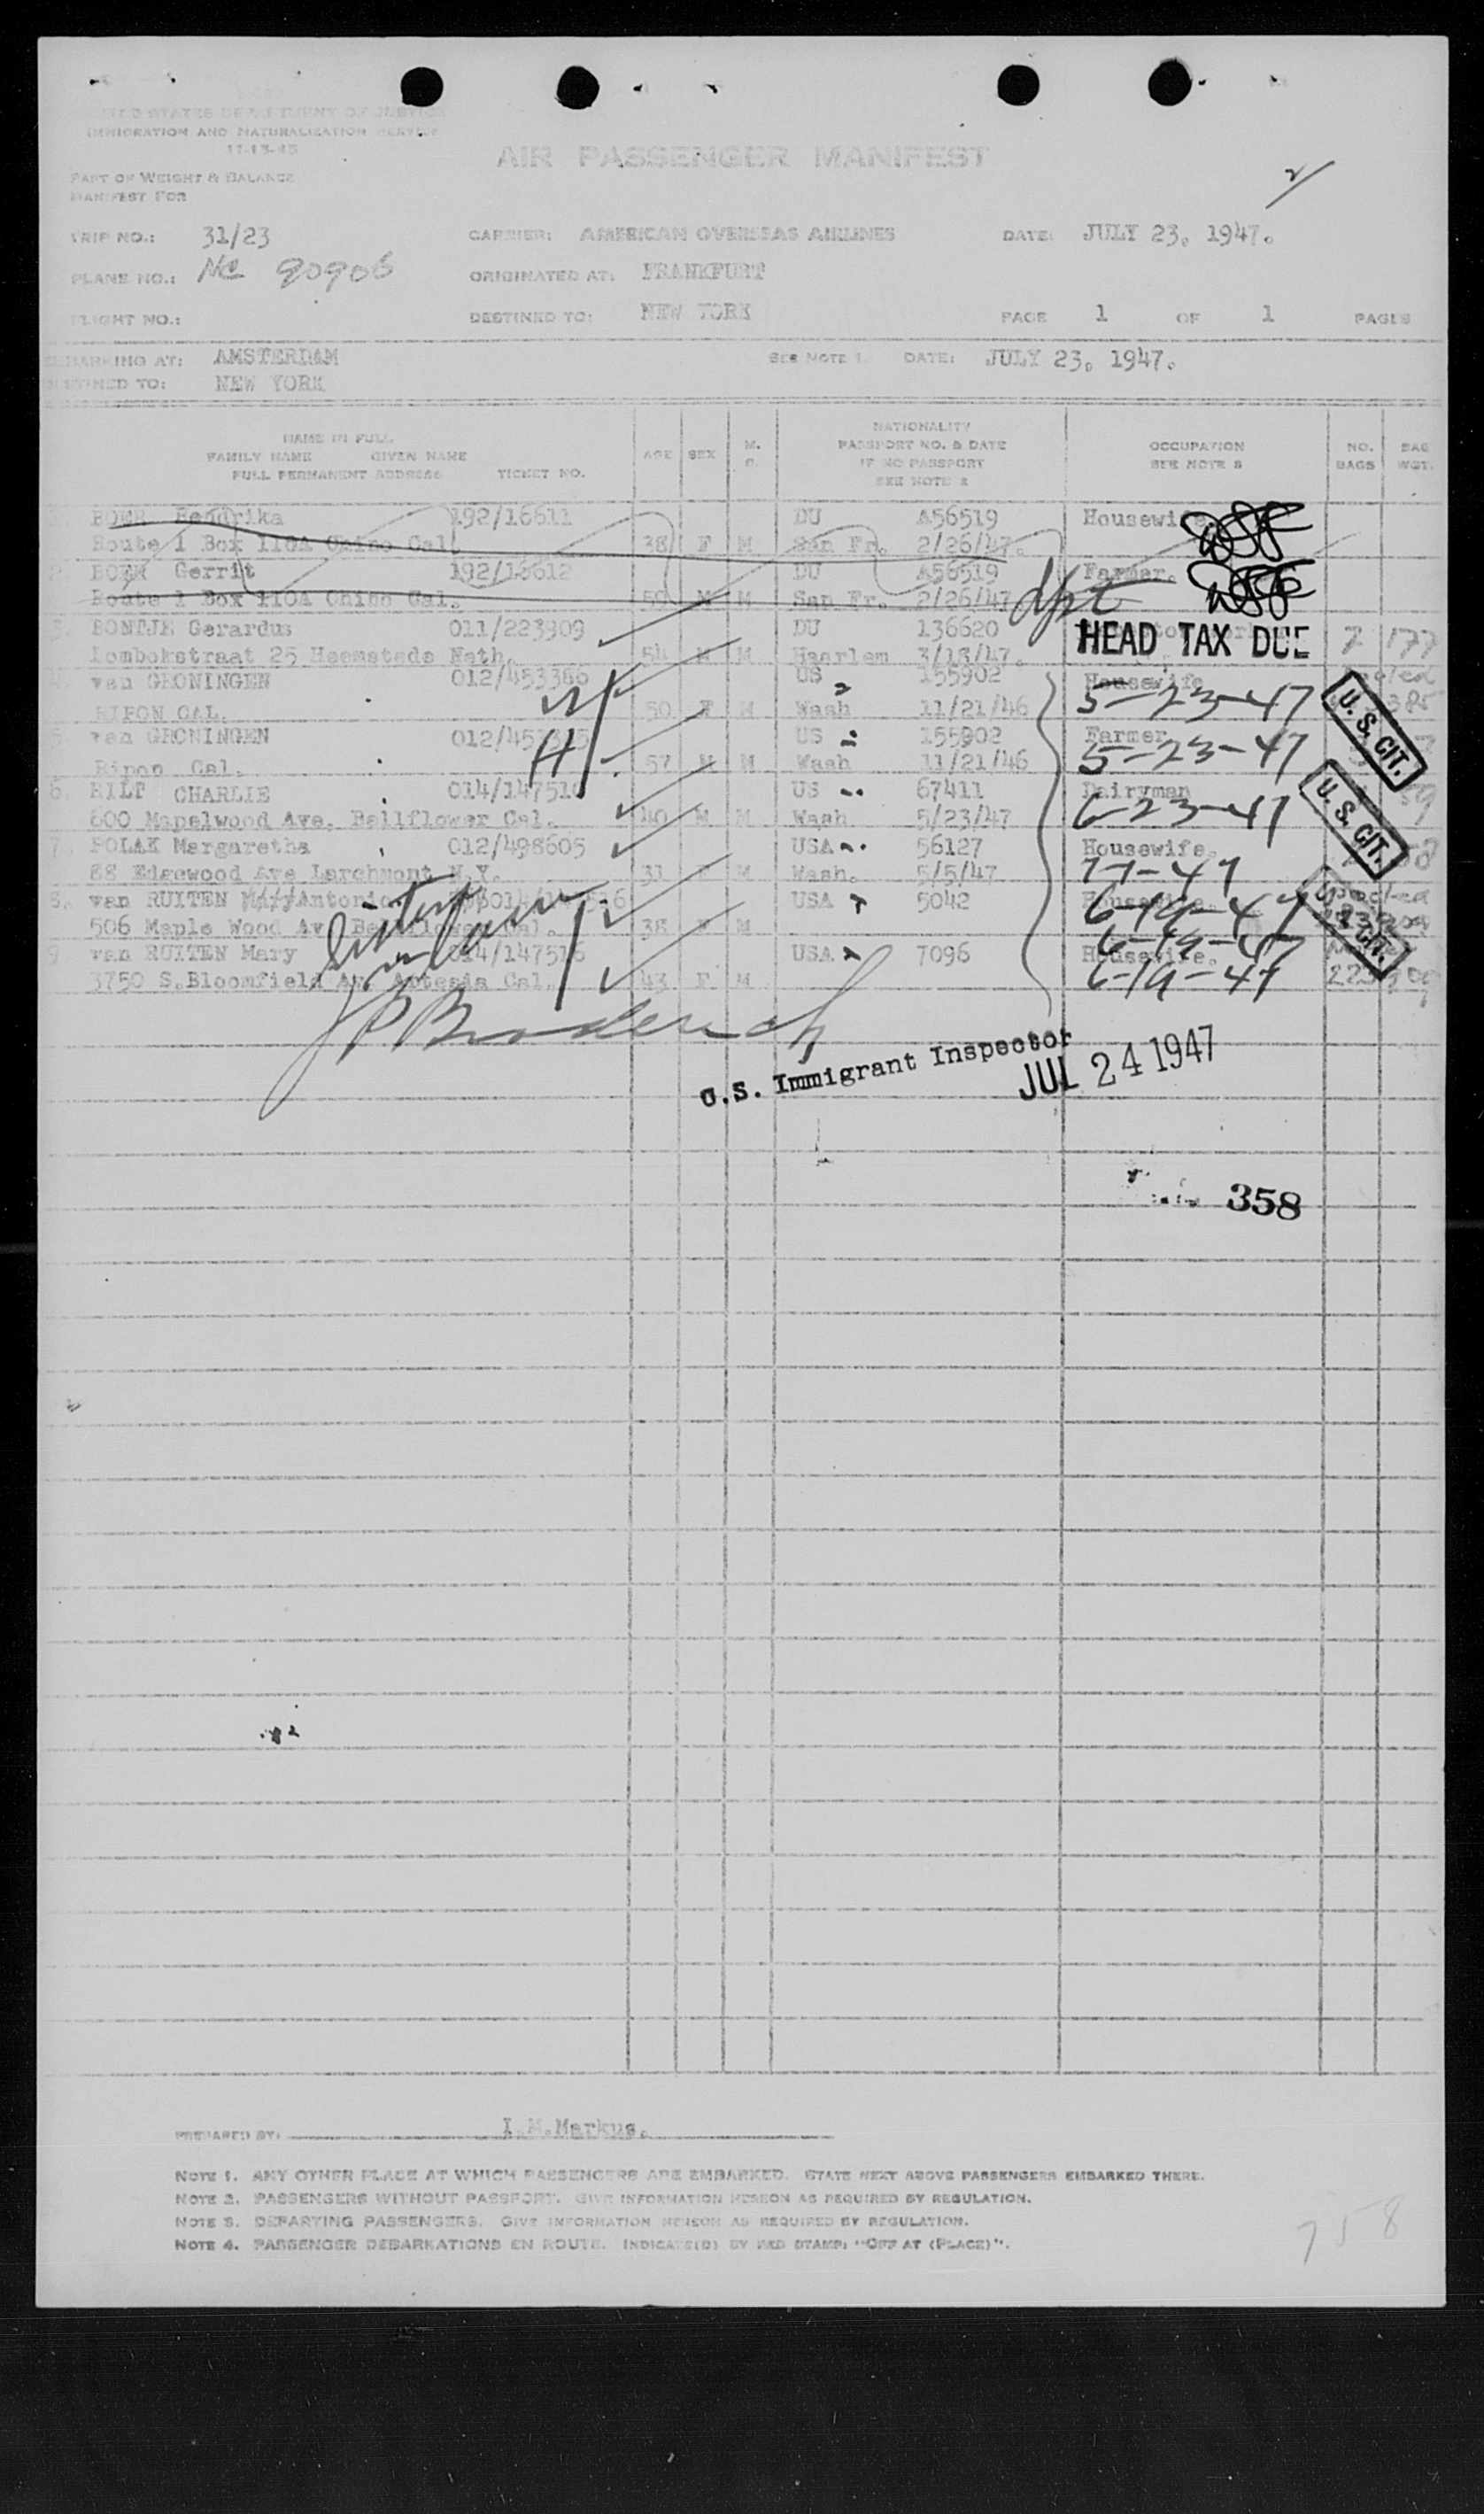 UNITED STATES DEPARTMENT OF JUSTICE
IMMIGRATION AND NATURALIZATION SERVICE
11-15-45
AIR PASSENGER MANIFEST
PART OF WEIGHT & BALANCE
MANIFEST FOR
TRIP NO.: 31/23 CARRIER: AMERICAN OVERSEAS AIRLINES DATE: JULY 23, 1947.
PLANE NO.: NC 90906 ORIGINATED AT: FRANKFURT
FLIGHT NO.: DESTINED TO: NEW YORK PAGE 1 OF 1 PAGES
EMBARKING AT: AMSTERDAM SEE NOTE 1. DATE: JULY 23, 1947.
DESTINED TO: NEW YORK
NAME IN FULL
FAMILY NAME GIVEN NAME
FULL PERMANENT ADDRESS TICKET NO.
AGE SEX M.
NATIONALITY
PASSPORT NO. & DATE
IF NO PASSPORT
SEE NOTE 2
OCCUPATION
SEE NOTE 3
NO. BAGS
BAG WGT.
BOER Hendrika 192/16611 DU A56519 Housewife.
Route 1 Box 110A Chino Cal. 38 F M San Fr. 2/26/47.
BOER Gerrit 192/16612 DU A56519 Farmer.
Route 1 Box 110A Chino Cal. 59 M M San Fr. 2/26/47
3. BONTJE Gerardus 011/223909 DU 136620 HEAD TAX DUE 2 177
Lombokstraat 25 Heemstede Neth. 54 M M Haarlem 3/13/47.
van GRONINGEN 012/453386 US 155902 Housewife
RIPON CAL. 50 F M Wash 11/21/46 5-23-47
5. van GRONINGEN US 155902 Farmer
Ripon Cal. 57 M M Wash 11/21/46 5-23-47
U. S. CIT.
6. RILT CHARLIE US 67411 Dairyman
600 Mapelwood Ave. Bellflower Cal. 40 M M Wash 5/23/47 6-23-47
U. S. CIT.
7. POLAK Margaretha 012/498605 USA 56127 Housewife.
88 Edgewood Ave Larchmont N.Y. 31 F M Wash. 5/5/47 7-7-47
8. van RUITEN Antonio USA 5042 Housewife.
506 Maple Wood Av. Bellflower Cal. 38 F M 6-19-47
U. S. CIT.
9 van RUITEN Mary 014/147516 USA 7096 Housewife. 6-19-47
3750 S.Bloomfield Av. Artesia Cal. 43 F M 6-19-47
U.S. Immigrant Inspector
JUL 24 1947
358
PREPARED BY: I.M.Markus.
NOTE 1. ANY OTHER PLACE AT WHICH PASSENGERS ARE EMBARKED. STATE NEXT ABOVE PASSENGERS EMBARKED THERE.
NOTE 2. PASSENGERS WITHOUT PASSPORT. GIVE INFORMATION HEREON AS REQUIRED BY REGULATION.
NOTE 3. DEPARTING PASSENGERS. GIVE INFORMATION HEREON AS REQUIRED BY REGULATION.
NOTE 4. PASSENGER DEBARKATIONS EN ROUTE. INDICATE(D) BY RED STAMP: "OFF AT (PLACE)".
758